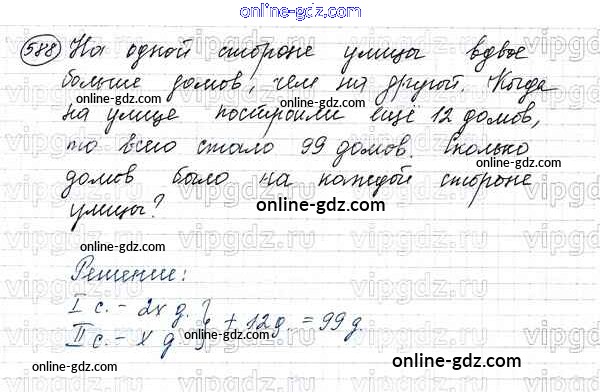 online-gdz.com
588 На одной стороне улицы вдвое
больше домов, чем на другой. Когда
online-gdz.com online-gdz.com
на улице построили ещё 12 домов,
то всего стало 99 домов. Сколько
online-gdz.com
домов было на каждой стороне
улицы?
online-gdz.com
online-gdz.com
Решение:
I с. - 2x д.
II с. - x д. } + 12 д. = 99 д.
online-gdz.com
online-gdz.com